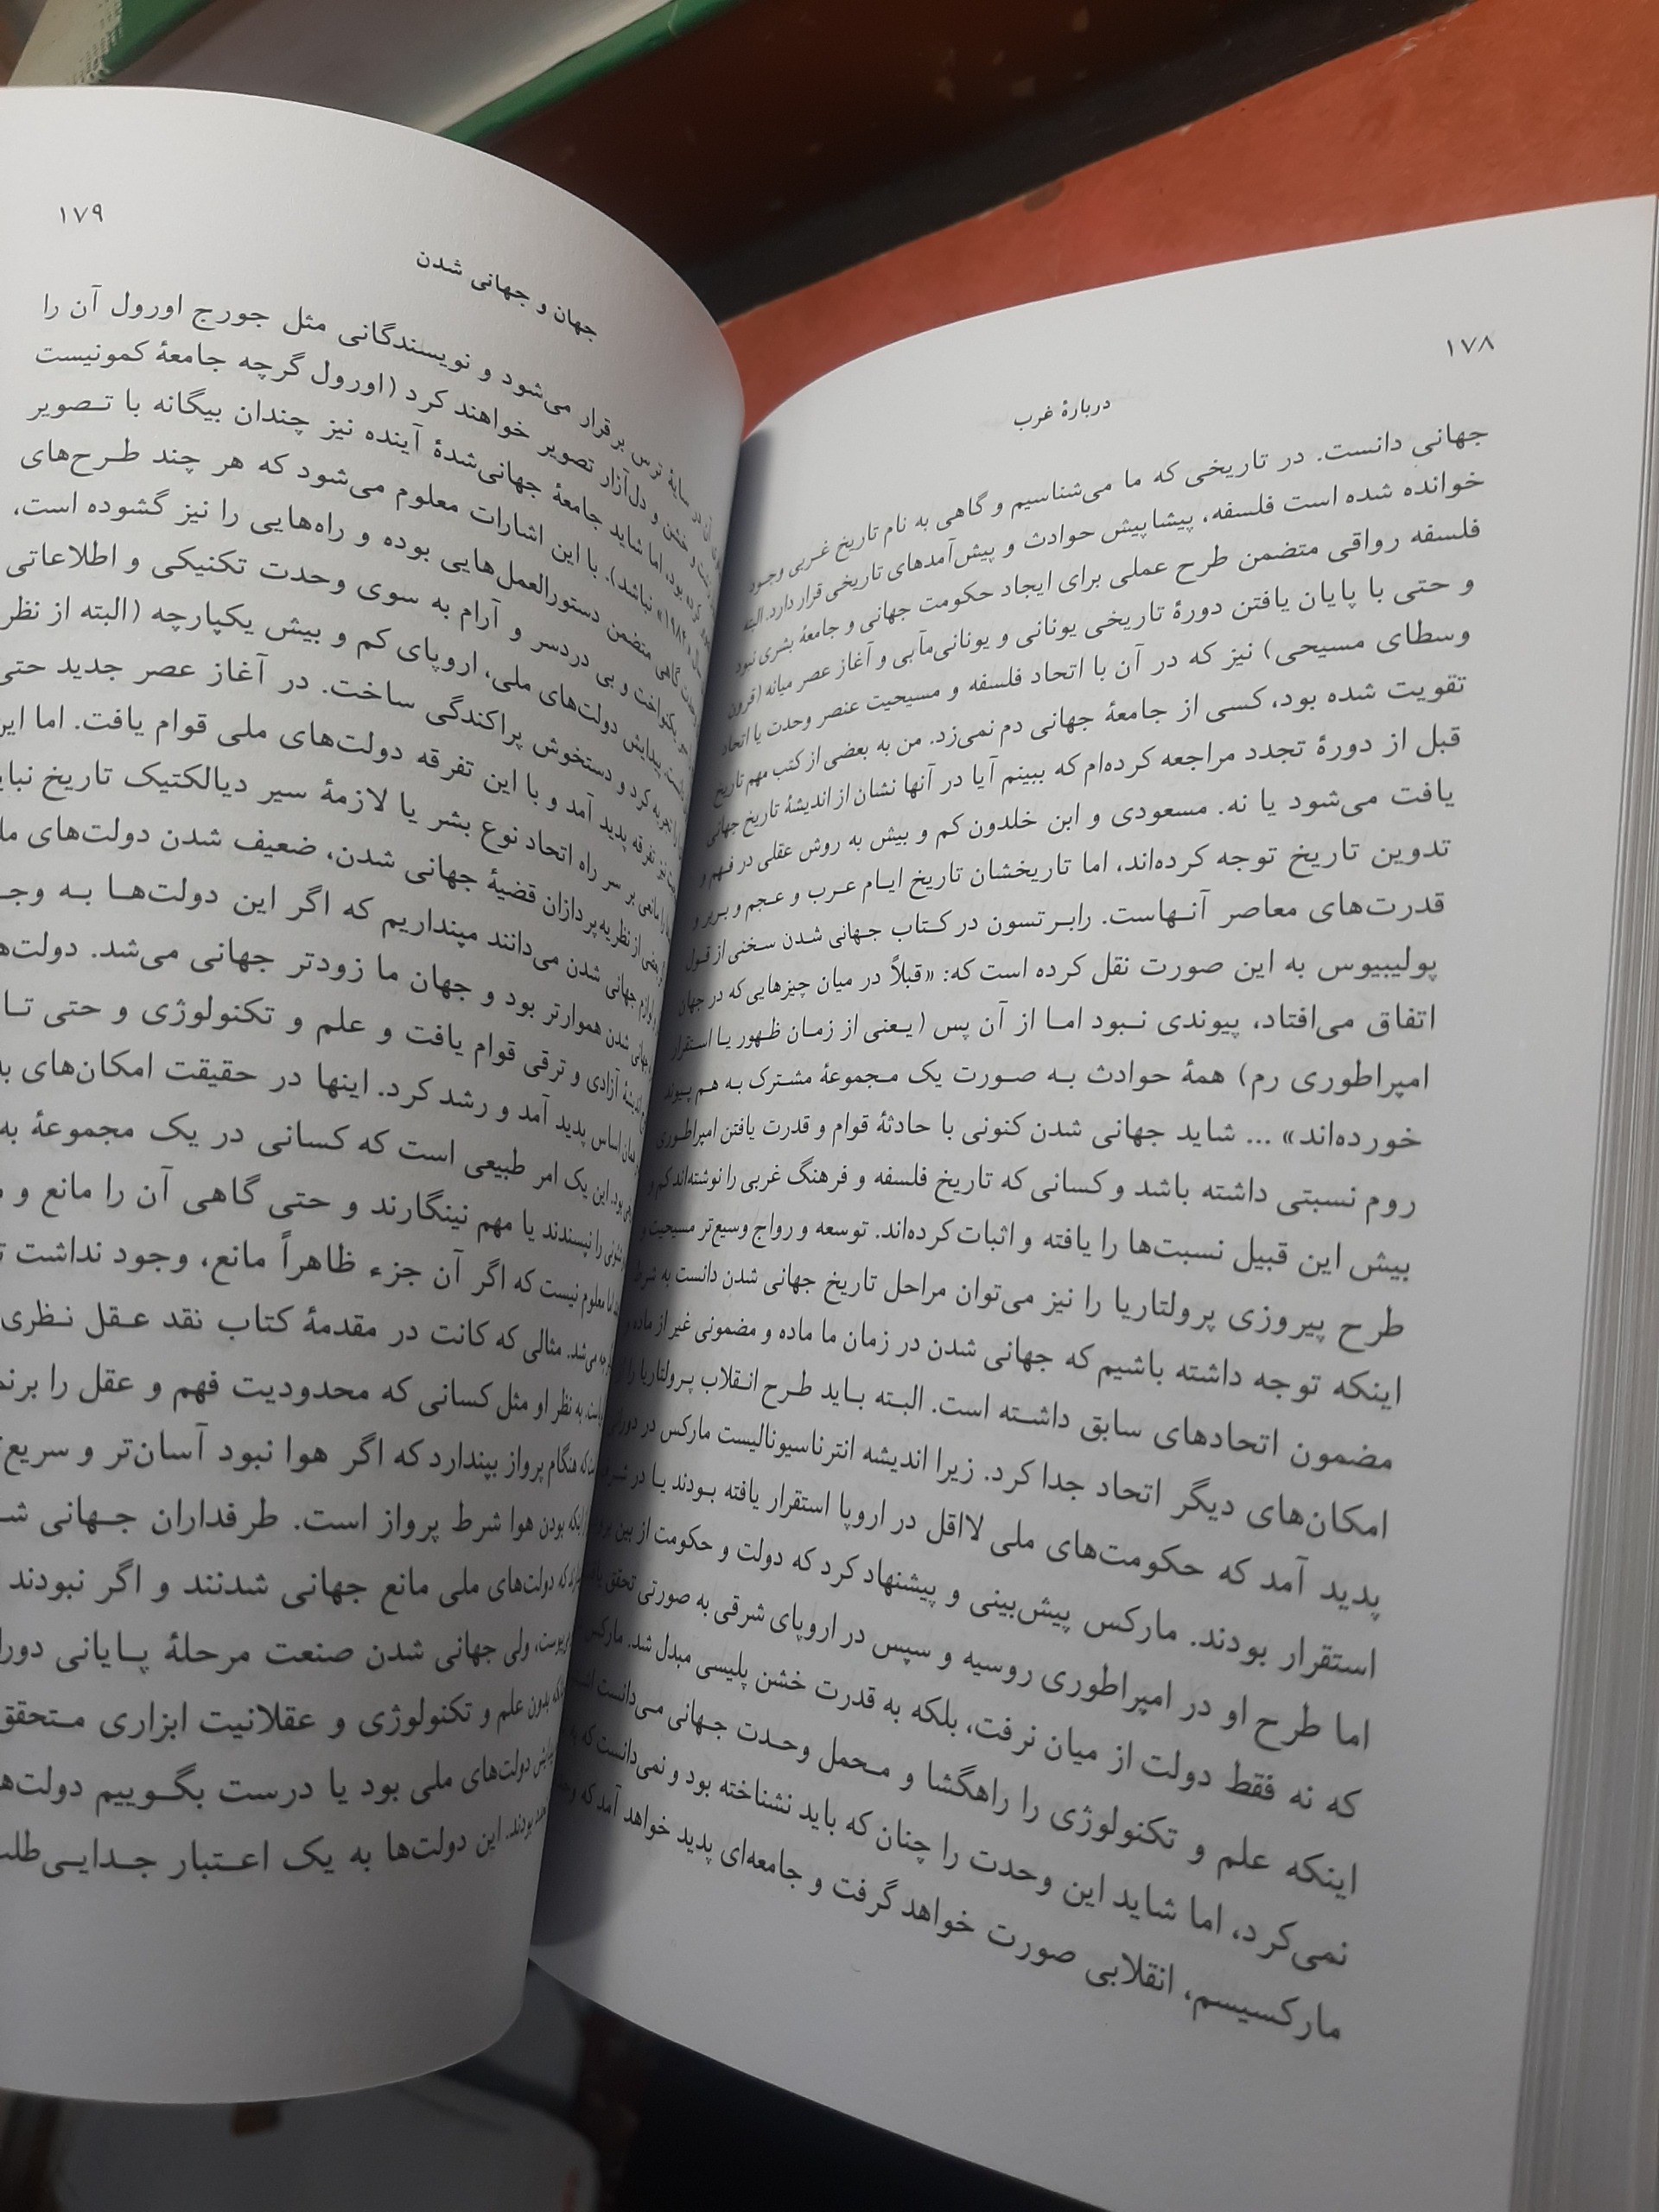 ۱۷۸
دربارهٔ غرب
جهانی دانست. در تاریخی که ما می‌شناسیم و گاهی به نام تاریخ غربی وجود
خوانده شده است فلسفه، پیشاپیش حوادث و پیش‌آمدهای تاریخی قرار دارد. البته
فلسفه رواقی متضمن طرح عملی برای ایجاد حکومت جهانی و جامعهٔ بشری نبود
و حتی با پایان یافتن دورهٔ تاریخی یونانی و یونانی‌مآبی و آغاز عصر میانه (قرون
وسطای مسیحی) نیز که در آن با اتحاد فلسفه و مسیحیت عنصر وحدت یا اتحاد
تقویت شده بود، کسی از جامعهٔ جهانی دم نمی‌زد. من به بعضی از کتب مهم تاریخ
قبل از دورهٔ تجدد مراجعه کرده‌ام که ببینم آیا در آنها نشان از اندیشهٔ تاریخ جهانی
یافت می‌شود یا نه. مسعودی و ابن خلدون کم و بیش به روش عقلی در فهم و
تدوین تاریخ توجه کرده‌اند، اما تاریخشان تاریخ ایام عرب و عجم و بربر و
قدرت‌های معاصر آنهاست. رابرتسون در کتاب جهانی شدن سخنی از قول
پولیبیوس به این صورت نقل کرده است که: «قبلاً در میان چیزهایی که در جهان
اتفاق می‌افتاد، پیوندی نبود اما از آن پس (یعنی از زمان ظهور یا استقرار
امپراطوری رم) همهٔ حوادث به صورت یک مجموعهٔ مشترک به هم پیوند
خورده‌اند» ... شاید جهانی شدن کنونی با حادثهٔ قوام و قدرت یافتن امپراطوری
روم نسبتی داشته باشد و کسانی که تاریخ فلسفه و فرهنگ غربی را نوشته‌اند کم و
بیش این قبیل نسبت‌ها را یافته و اثبات کرده‌اند. توسعه و رواج وسیع‌تر مسیحیت و
طرح پیروزی پرولتاریا را نیز می‌توان مراحل تاریخ جهانی شدن دانست به شرط
اینکه توجه داشته باشیم که جهانی شدن در زمان ما ماده و مضمونی غیر از ماده و
مضمون اتحادهای سابق داشته است. البته باید طرح انقلاب پرولتاریا را از
امکان‌های دیگر اتحاد جدا کرد. زیرا اندیشه انترناسیونالیست مارکس در دورانی
پدید آمد که حکومت‌های ملی لااقل در اروپا استقرار یافته بودند یا در شرف
استقرار بودند. مارکس پیش‌بینی و پیشنهاد کرد که دولت و حکومت از بین برود
اما طرح او در امپراطوری روسیه و سپس در اروپای شرقی به صورتی تحقق یافت
که نه فقط دولت از میان نرفت، بلکه به قدرت خشن پلیسی مبدل شد. مارکس
اینکه علم و تکنولوژی را راهگشا و محمل وحدت جهانی می‌دانست
نمی‌کرد، اما شاید این وحدت را چنان که باید نشناخته بود و نمی‌دانست که
مارکسیسم، انقلابی صورت خواهد گرفت و جامعه‌ای پدید خواهد آمد که
۱۷۹
جهان و جهانی شدن
در سایهٔ ترس برقرار می‌شود و نویسندگانی مثل جورج اورول آن را
و خشن و دل‌آزار تصویر خواهند کرد (اورول گرچه جامعهٔ کمونیست
کرده بود، اما شاید جامعهٔ جهانی‌شدهٔ آینده نیز چندان بیگانه با تصویر
«۱۹۸۴» نباشد). با این اشارات معلوم می‌شود که هر چند طرح‌های
گاهی متضمن دستورالعمل‌هایی بوده و راه‌هایی را نیز گشوده است،
یکنواخت و بی دردسر و آرام به سوی وحدت تکنیکی و اطلاعاتی
پیدایش دولت‌های ملی، اروپای کم و بیش یکپارچه (البته از نظر
را تجزیه کرد و دستخوش پراکندگی ساخت. در آغاز عصر جدید حتی
نیز تفرقه پدید آمد و با این تفرقه دولت‌های ملی قوام یافت. اما این
را مانعی بر سر راه اتحاد نوع بشر یا لازمهٔ سیر دیالکتیک تاریخ
بعضی از نظریه‌پردازان قضیهٔ جهانی شدن، ضعیف شدن دولت‌های
لوازم جهانی شدن می‌دانند مپنداریم که اگر این دولت‌ها به
جهانی شدن هموارتر بود و جهان ما زودتر جهانی می‌شد.
اندیشهٔ آزادی و ترقی قوام یافت و علم و تکنولوژی و حتی
اساس پدید آمد و رشد کرد. اینها در حقیقت امکان‌های
بود. این یک امر طبیعی است که کسانی در یک مجموعهٔ
را نپسندند یا مهم نینگارند و حتی گاهی آن را مانع و
اما معلوم نیست که اگر آن جزء ظاهراً مانع، وجود نداشت
می‌شد. مثالی که کانت در مقدمهٔ کتاب نقد عقل نظری
به نظر او مثل کسانی که محدودیت فهم و عقل را
که هنگام پرواز بپندارد که اگر هوا نبود آسان‌تر و
اینکه بودن هوا شرط پرواز است. طرفداران جهانی
که دولت‌های ملی مانع جهانی شدنند و اگر نبودند
ولی جهانی شدن صنعت مرحلهٔ پایانی
بدون علم و تکنولوژی و عقلانیت ابزاری متحقق
دولت‌های ملی بود یا درست بگوییم
بودند. این دولت‌ها به یک اعتبار